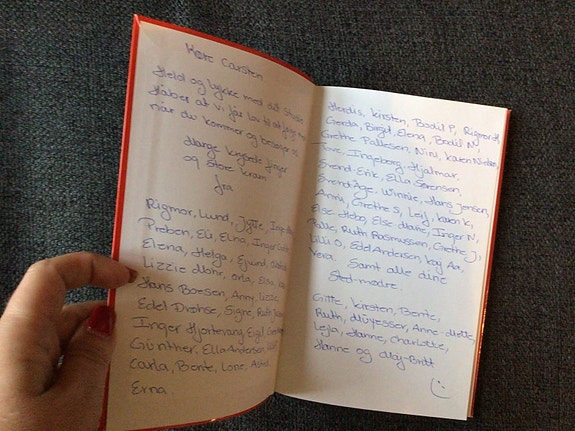 Kære Carsten
Held og lykke med dit studie
Håber at vi får lov til at følge med
når du kommer og besøger os
Mange krydsede fingre
og store kram
fra
Rigmor, Lund, Jytte, Inge
Preben, Eli, Elna, Inger
Elena, Helga, Ejlund,
Lizzie Mohr, Orla, Elsa,
Hans Boesen, Anny, Lizzie
Edel Drohse, Signe, Ruth
Inger Hjortevang Eigil, Grethe
Günther, Ella Andersen,
Carla, Bente, Lone, Astrid,
Erna
Herdis, Kirsten, Bodil P, Rigmor H,
Gerda, Birgit, Elena, Bodil N,
Grethe Pallesen, Nini, Karen Nielsen
Tove, Ingeborg, Hjalmar,
Svend-Erik, Ella Sørensen,
Svend Åge, Winnie, Hans Jensen,
Anna, Grethe S, Leif, Karen K,
Else Hebo, Else Marie, Inger N,
Palle, Ruth Rasmussen, Grethe J,
Lilli O, Edel Andersen, Kaj Aa.
Vera. Samt alle dine
Sted-mødre.
Gitte, Kirsten, Bente,
Ruth, Müyesser, Anne-Mette,
Lejla, Hanne, Charlotte,
Hanne og Maj-Britt